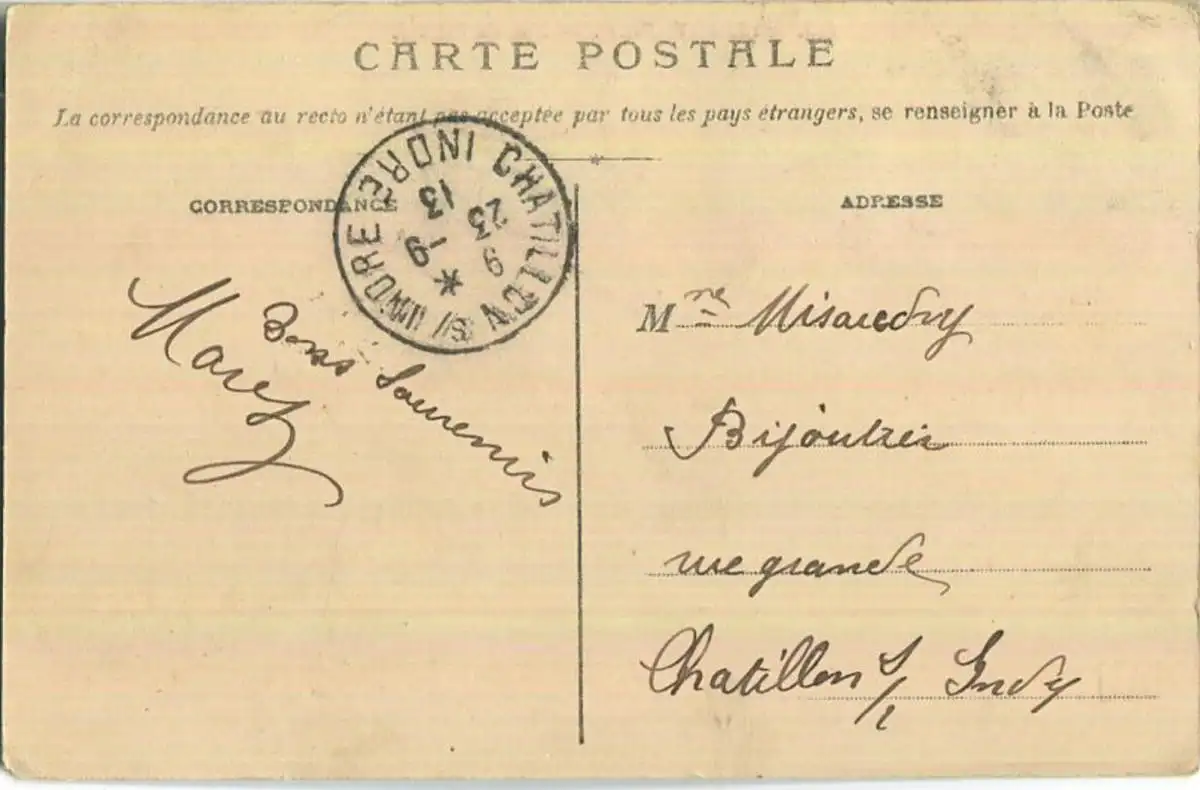 CARTE POSTALE
La correspondance au recto n'étant pas acceptée par tous les pays étrangers, se renseigner à la Poste
CORRESPONDANCE
ADRESSE
CHATILLON S/ INDRE INDRE
9
23 -9
13
Bons Souvenirs
M me
Bijoutier
rue grande
Chatillon S/